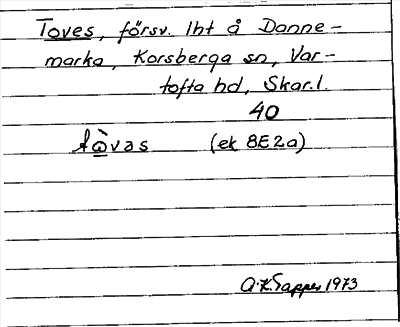 Toves, försv. lht å Danne-
marka, Korsberga sn, Var-
tofta hd, Skar.l.
40
tòvas (ek 8E2a)
1973